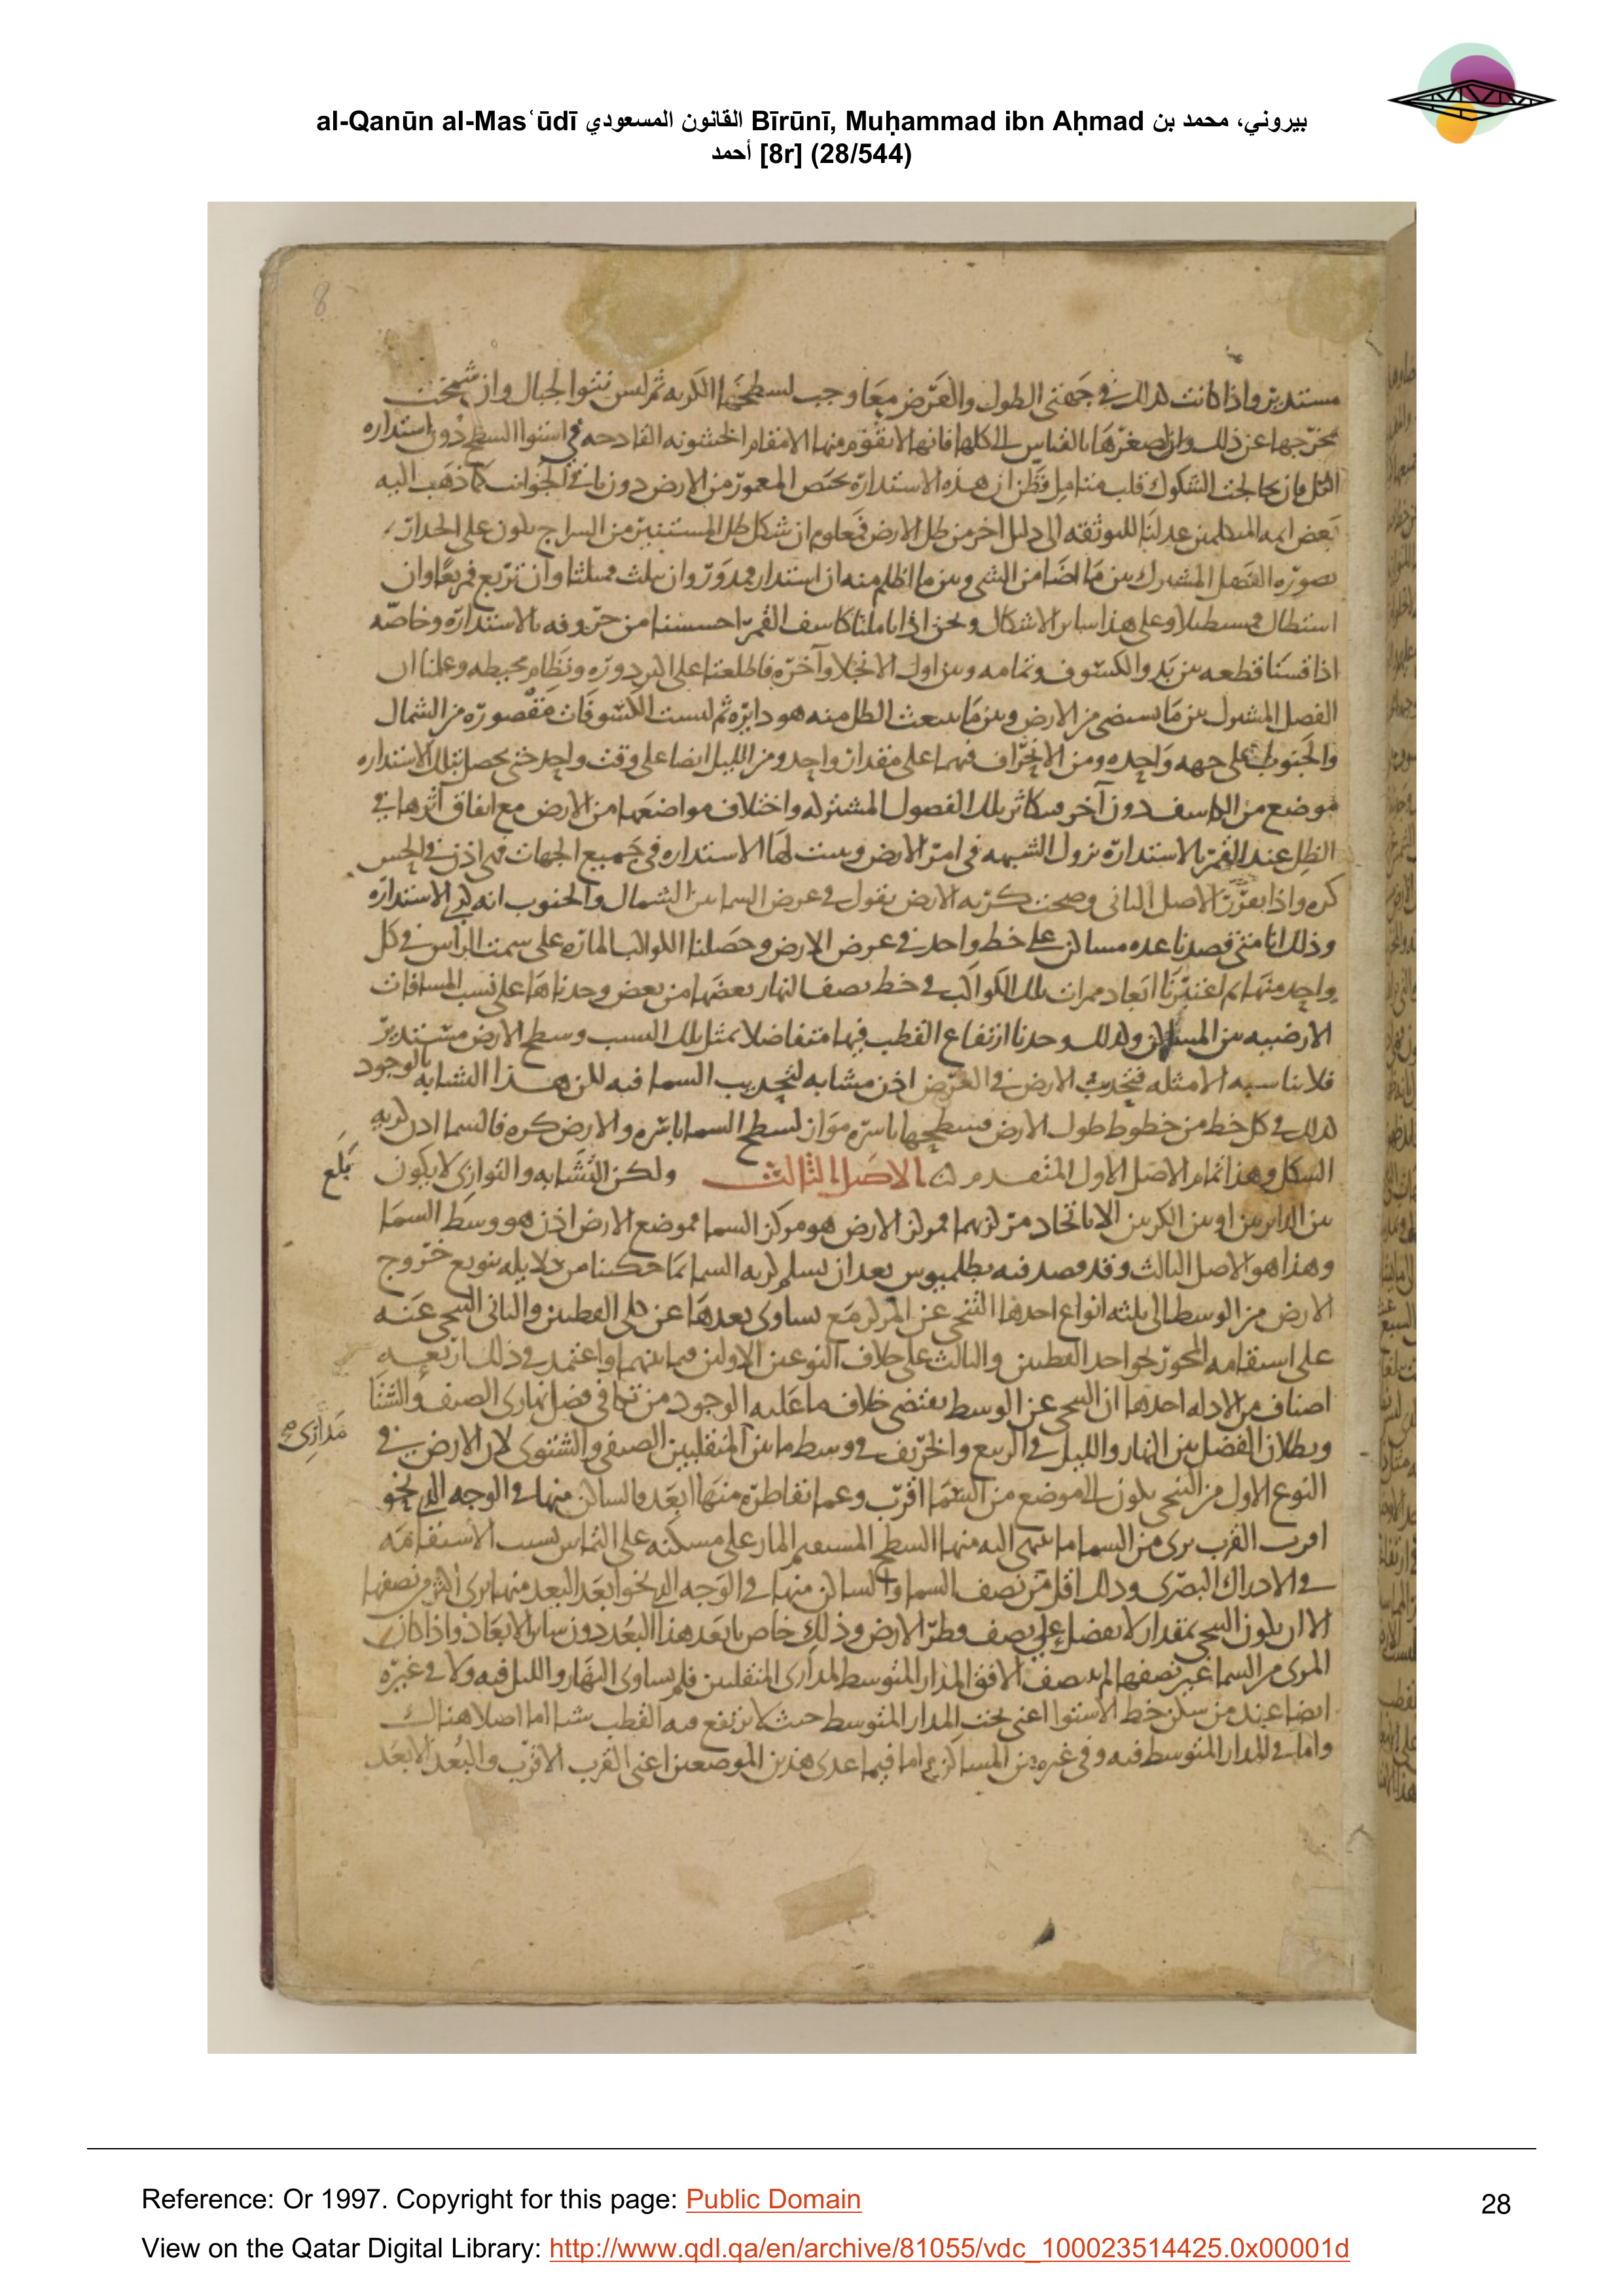 al-Qanūn al-Mas‘ūdī القانون المسعودي Bīrūnī, Muḥammad ibn Aḥmad بيروني، محمد بن
أحمد [8r] (28/544)
8
مستديرة واذا كانت كذلك في جهتي الطول والعرض معا وجب لسطحها الكرية ثم ليس نتوا الجبال وان شمخت
بمخرجها عن ذلك وان لصغرها بالقياس الى كلها فانها لا تقوم منها الا مقام الخشونة القادحة في استوا السطح دون استداره
الكل فان تخالجت الشكوك قلب متامل فظن ان هذه الاستدارة تختص المعمور من الارض دون باقي الجوانب كما ذهب اليه
بعض ايمه المتكلمين عدلنا للتوثقه الى دليل اخر من ظل الارض فمعلوم ان شكل ظل المستنير من السراج يكون على الجدار
بصورة الفصل المشترك بين ما اضا من الشي وبين ما اظلم منه ان استدار فمدور وان تثلث فمثلثا وان تربع فمربعا وان
استطال فمستطيلا وعلى هذا ساير الاشكال ونحن اذا تاملنا كاسف القمر احسسنا من حروفه بالاستدارة وخاصه
اذا قسنا قطعه بين بدو الكسوف وتمامه وبين اول الانجلا وآخره فاطلعنا على دوره ونظام محيطه وعلمنا ان
الفصل المشترك بين ما يستضي من الارض وبين ما ينبعث الظل منه هو دايرة ثم ليست الكسوفات مقصورة من الشمال
والجنوب على جهه واحده ومن الانحراف فيهما على مقدار واحد ومن الليل ايضا على وقت واحد حتى يحصل بتلك الاستداره
موضع من الكاسف دون آخر فتكاثر تلك الفصول المشتركه واختلاف مواضعها من الارض مع اتفاق اثرها في
الظل عند القمر بالاستدارة تزول الشبهه في امر الارض ويثبت لها الاستداره في جميع الجهات فهي اذن في الحس
كره واذا تقررت الاصل الثاني وصحت كرية الارض نقول في عرض السما بين الشمال والجنوب انه كري الاستدارة
وذلك انا متى قصدنا عدة مساكن على خط واحد في عرض الارض وحصلنا الكواكب المارة على سمت الرأس في كل
واحد منها ثم اعتبرنا ابعاد ممرات تلك الكواكب في خط نصف النهار بعضها من بعض وجدناها على نسب المسافات
الارضيه بين المساكن ولذلك وجدنا ارتفاع القطب فيها متفاضلا بمثل تلك النسب وسطح الارض مستدير
فلا يناسبه الا مثله فتحديب الارض في العرض اذن مشابه لتحديب السما فيه لكن هذا التشابه بالوجود
كذلك في كل خط من خطوط طول الارض فسطحها باسره مواز لسطح السما باسره والارض كره فالسما اذن كريه
الشكل وهذا تمام الاصل الاول المتقدم الاصل الثالث ولكن التشابه والتوازي لا يكون
بلغ
بين الدايرتين او بين الكرتين الا باتحاد مركزيهما فمركز الارض هو مركز السما فموضع الارض اذن هو وسط السما
وهذا هو الاصل الثالث وقد قصد فيه بطلميوس بعد ان يسلم كرية السما بما حكينا من دلايله تنويع خروج
الارض من الوسط الى ثلثه انواع احدها التنحي عن المركز مع تساوي بعدها عن كلى القطبين والثاني التنحي عنه
على استقامه المحور نحو احد القطبين والثالث على خلاف النوعين الاولين فيما بينهما واعتمد في ذلك اربعه
اصناف من الادله احدها ان التنحي عن الوسط يقتضي خلاف ما عليه الوجود من تكافي فضل نهاري الصيف والشتا
وبطلان الفضل بين النهار والليل في الربيع والخريف في وسط ما بين المنقلبين الصيفي والشتوي لان الارض في
مداري صح
النوع الاول من التنحي تكون الى موضع من السما اقرب وعما تقاطره منها ابعد والساكن منها في الوجه الذي نحو
اقرب القرب يرى من السما ما ينتهي اليه منها السطح المستقيم المار على مسكنه على التماس بسبب الاستقامه
في الادراك البصري وذلك اقل من نصف السما والساكن منها في الوجه الذي نحو ابعد البعد منها يرى اكثر من نصفها
الا ان يكون التنحي بمقدار لا يفضل على نصف قطر الارض وذلك خاص بابعد هذا البعد دون ساير الابعاد واذا كان
المرى من السما غير نصفها لم ينصف الافق المدار المتوسط لمداري المنقلبين فلم يتساوى النهار والليل فيه ولا في غيره
ايضا عند من سكن خط الاستوا اعني تحت المدار المتوسط حيث لا يرتفع فيه القطب شيا اما اصلا هناك
واما في المدار المتوسط فيه وفي غيره من المساكن اما فيما عدى هذين الموضعين اعني القرب الاقرب والبعد الابعد
Reference: Or 1997. Copyright for this page: Public Domain
28
View on the Qatar Digital Library: http://www.qdl.qa/en/archive/81055/vdc_100023514425.0x00001d